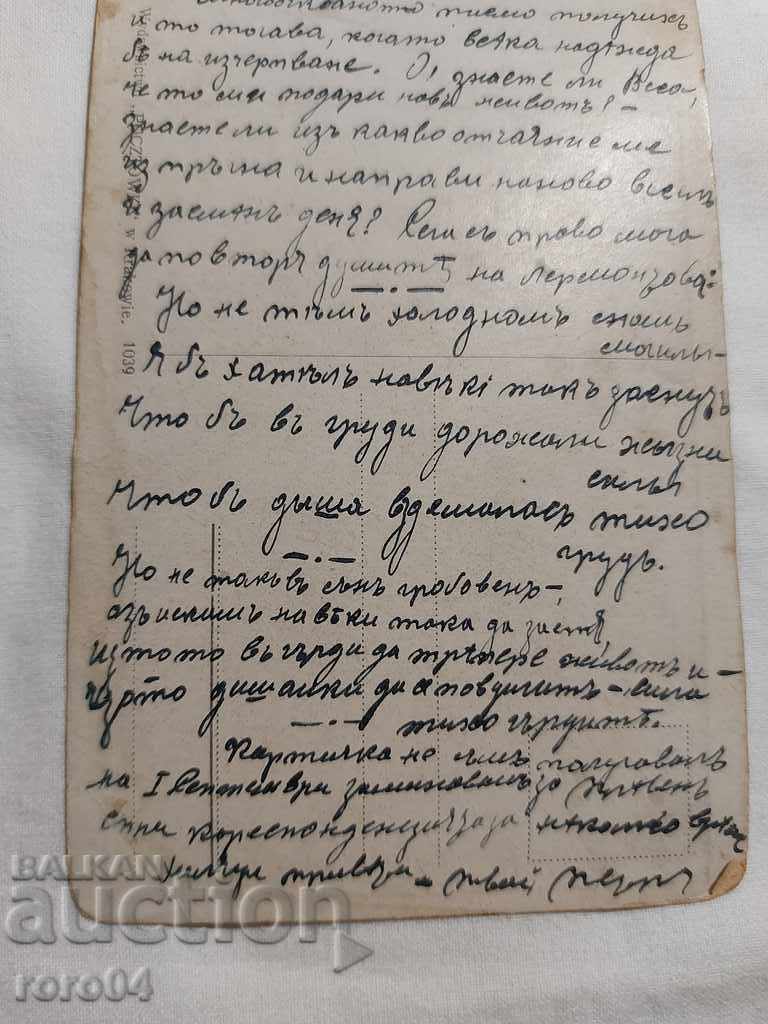 писмо получихъ
и то тогава, когато всѣка надѣжда
бѣ на изчерпване. О, знаете ли Веса,
че то ми подари новъ животъ! –
знаете ли изъ какво отчаяние ме
изтръгна и направи наново веселъ
и засмянъ деня? Сега съ право мога
да повторѫ думитѣ на Лермонтова:
Но не тѣмъ холодномъ сномъ
могилы –
Я бъ хатѣлъ навѣки такъ заснутъ
Что бъ въ груди дорожали жызни
силы
Что бъ дыша вздемалась тихо
грудъ.
Но не такъвъ сънь гробовенъ –,
азъ искамъ навѣки така да заспя,
щото въ гърди да трѣпере животъ и –
щото дишайки да се повдигатъ –
тихо гърдитѣ.
Картичка не съмъ получавалъ
на I Септември заминавамъ за Плѣвенъ
спри кореспонденцията за нѣколко време
твой Петръ
Wydawnictwo w Krakowie. 1039
BALKAN
auction
roro04